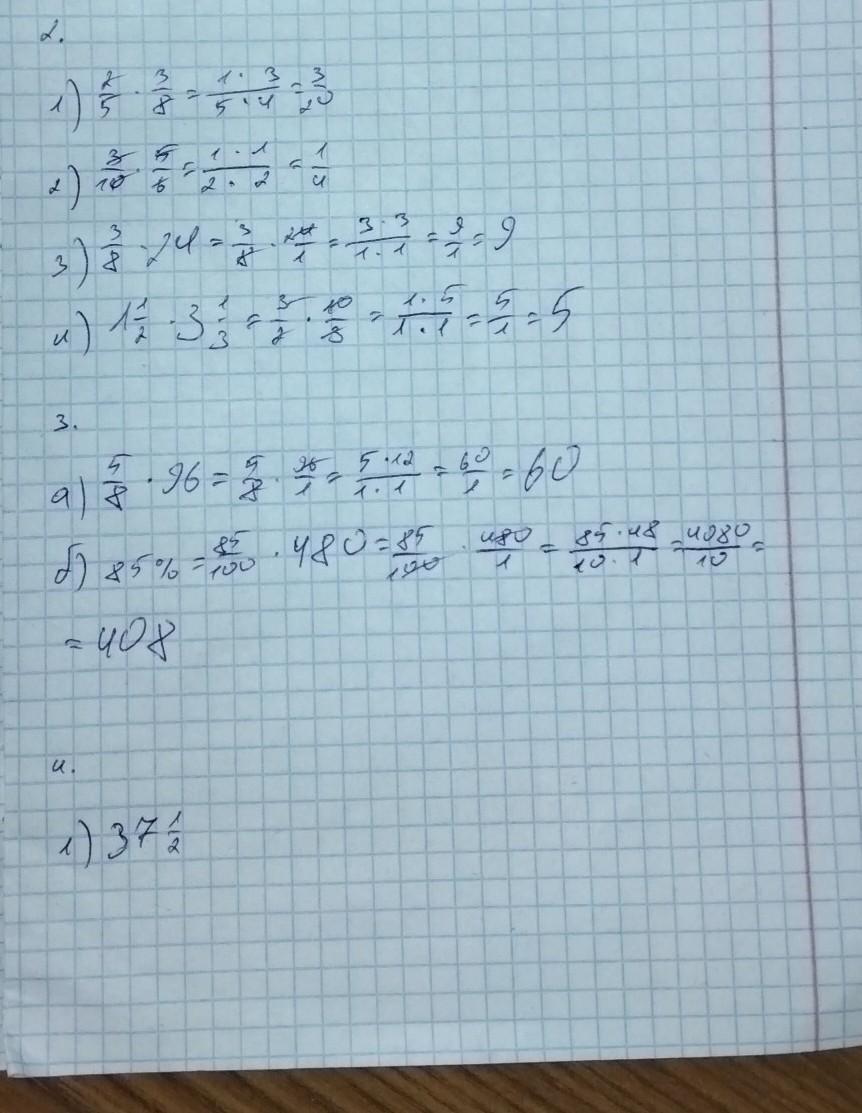 2.
1) 2/5 · 3/8 = 1 · 3/5 · 4 = 3/20
2) 3/10 · 5/6 = 1 · 1/2 · 2 = 1/4
3) 3/8 · 24 = 3/8 · 24/1 = 3 · 3/1 · 1 = 9/1 = 9
4) 1 1/2 · 3 1/3 = 3/2 · 10/3 = 1 · 5/1 · 1 = 5/1 = 5
3.
а) 5/8 · 96 = 5/8 · 96/1 = 5 · 12/1 · 1 = 60/1 = 60
б) 85% = 85/100 · 480 = 85/100 · 480/1 = 85 · 48/10 · 1 = 4080/10 =
= 408
4.
1) 37 1/2